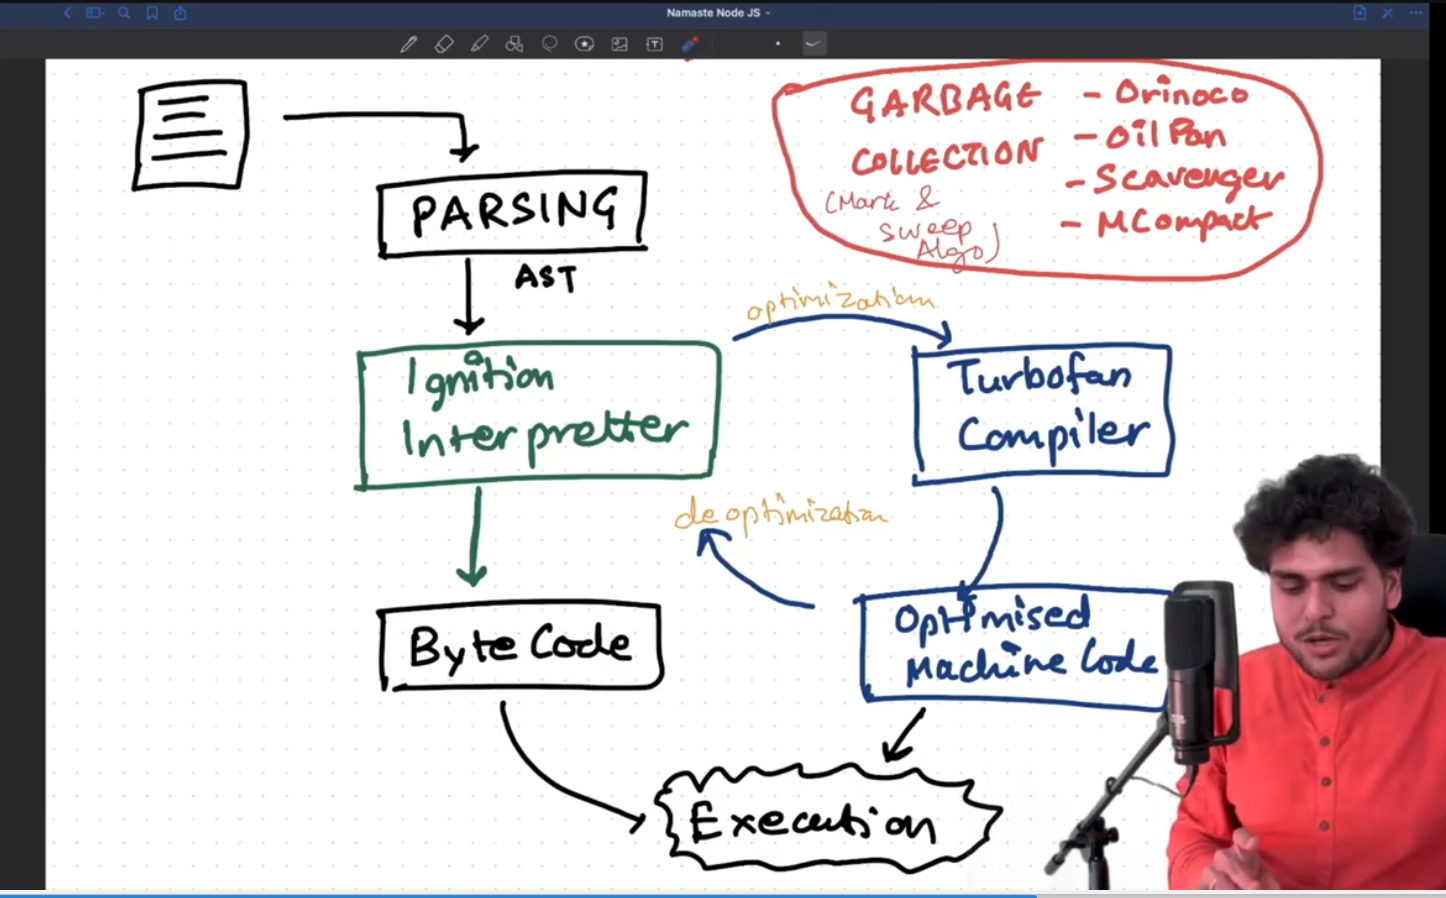 Namaste Node JS
GARBAGE
COLLECTION
(Mark &
Sweep
Algo)
- Orinoco
- Oil Pan
- Scavenger
- MCompact
PARSING
AST
optimization
Ignition
Interpretter
Turbofan
Compiler
de optimization
Byte Code
Optimised
Machine Code
Execution